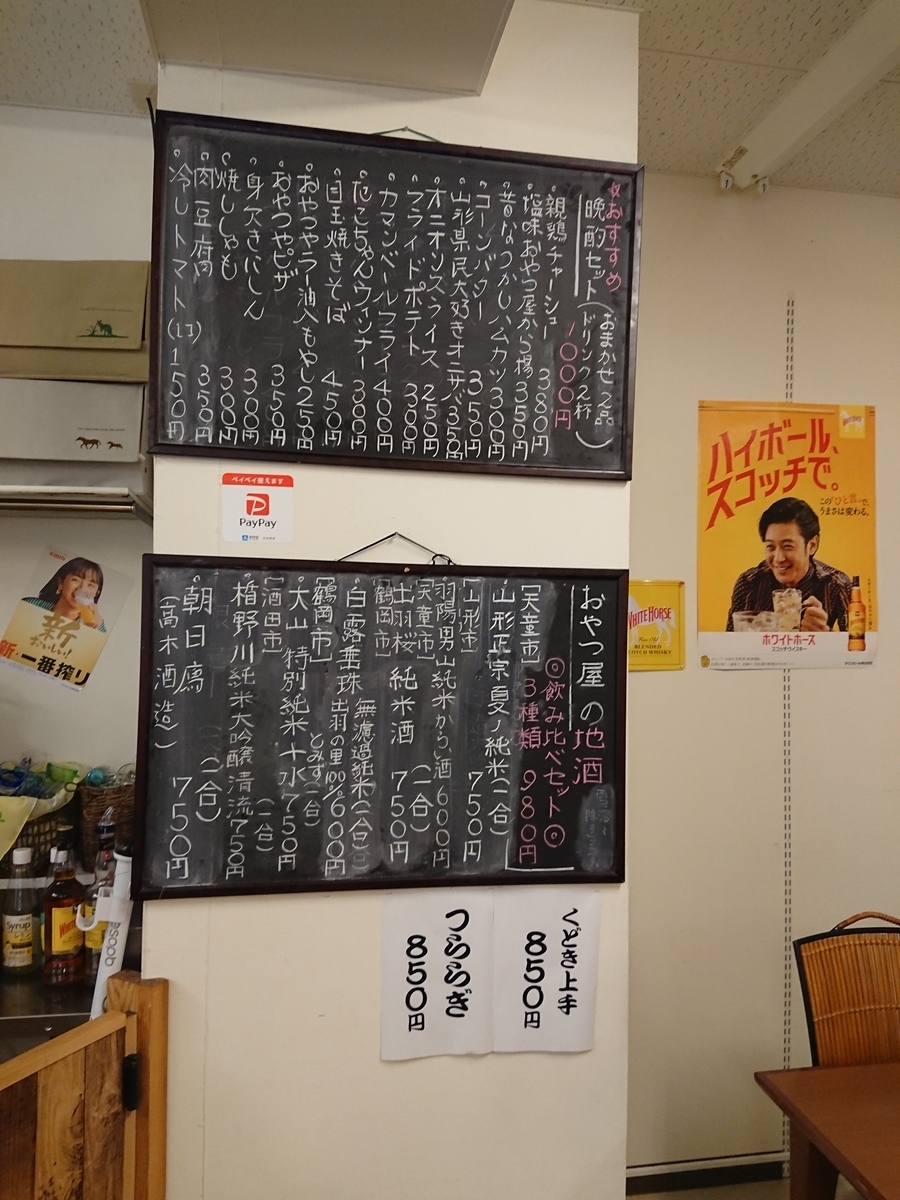 ☆おすすめ
晩酌セット(おまかせ2品
ドリンク2杯)
1000円
親鶏チャーシュー 380円
塩味おやつ屋から揚 350円
昔なつかしハムカツ 300円
コーンバター 350円
山形県民大好きオニザバ 350円
オニオンスライス 250円
フライドポテト 300円
カマンベールフライ 400円
たこちゃんウィンナー 300円
目玉焼きそば 450円
おやつやラー油入もやし 250円
おやつやピザ 350円
身欠きにしん 300円
焼ししゃも 300円
肉豆腐 350円
冷しトマト(1コ) 150円
ペイペイ使えます
PayPay
おやつ屋の地酒
◎飲み比べセット◎
3種類 980円
[天童市]
山形正宗 夏ノ純米(一合) 750円
[山形市]
羽陽男山 純米から酒 600円
[天童市]
出羽桜 純米酒 (一合) 750円
[鶴岡市]
白露垂珠 無濾過純米(一合)
出羽の里100% 600円
[鶴岡市]
大山 特別純米十水 750円
とみず(一合)
[酒田市]
楯野川 純米大吟醸 清流 750円
(一合)
朝日鷹 (一合) 750円
(高木酒造)
くどき上手
850円
つららぎ
850円
ハイボール、
スコッチで。
この"ひと言"で、
うまさは変わる。
ホワイトホース
スコッチウイスキー
WHITE HORSE
Fine Old
BLENDED
SCOTCH WHISKY
KIRIN
新
おいしい!
新・一番搾り
Syrup